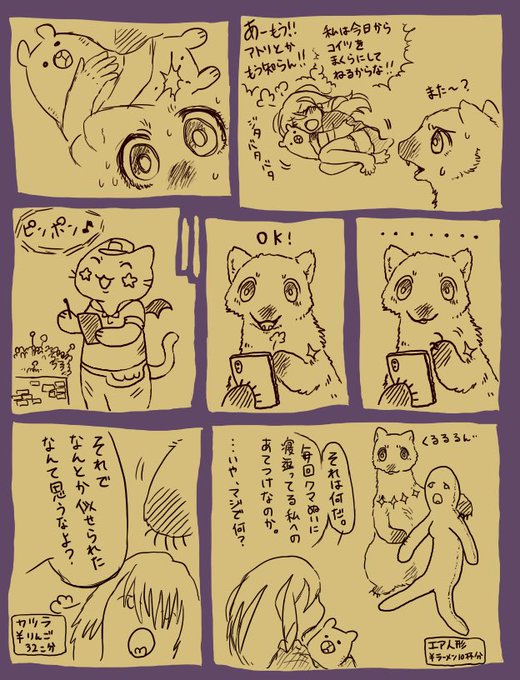 あーもう!!
アトリとか
もう知らん!!
私は今日から
コイツを
まくらにして
ねるからな!!
また〜?
ジタバタバタ
・・・・・・・
OK!
ピンポン♪
くるるるん
それは何だ。
毎回クマぬいに
寝張ってる私への
あてつけなのか。
…いや、マジで何?
エア人形
¥ラーメン10杯分
それで
なんとか似せられた
なんて思うなよ?
カツラ
¥りんご
32こ分